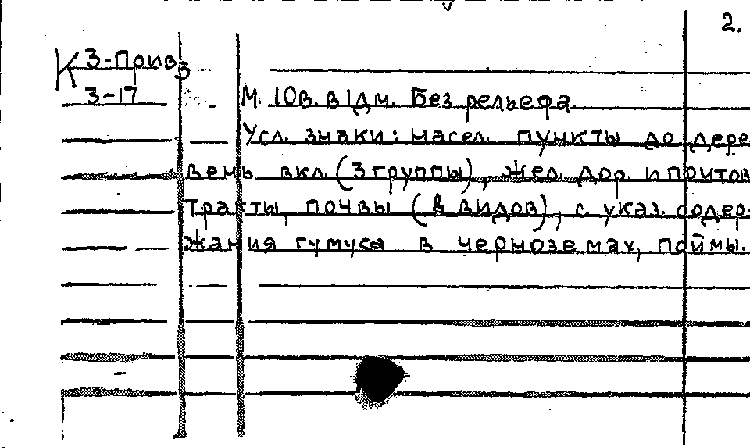 2.
К 3-Прив 3
3-17
М. 10в. в 1дм. Без рельефа.
Усл. знаки: насел. пункты до дере
вень вкл. (3 группы), жел. дор. и почтов
тракты, почвы (8 видов), с указ. содер-
жания гумуса в черноземах, поймы.